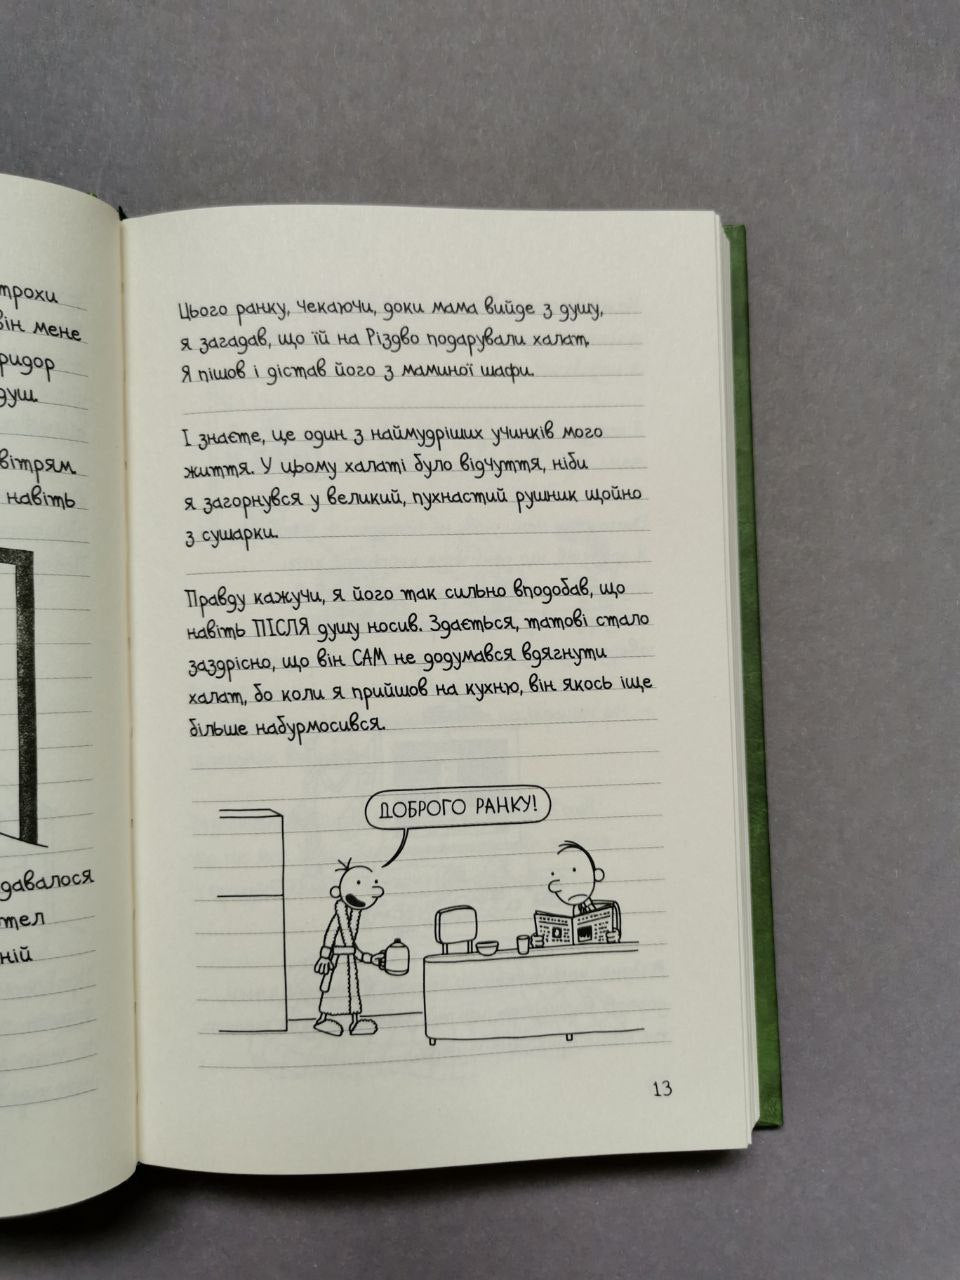 трохи
він мене
ридор
душ.
вітрям
навіть
давалося
тел
ній
Цього ранку, чекаючи, доки мама вийде з душу,
я загадав, що їй на Різдво подарували халат.
Я пішов і дістав його з маминої шафи.
І знаєте, це один з наймудріших учинків мого
життя. У цьому халаті було відчуття, ніби
я загорнувся у великий, пухнастий рушник щойно
з сушарки.
Правду кажучи, я його так сильно вподобав, що
навіть ПІСЛЯ душу носив. Здається, татові стало
заздрісно, що він САМ не додумався вдягнути
халат, бо коли я прийшов на кухню, він якось іще
більше набурмосився.
ДОБРОГО РАНКУ!
13